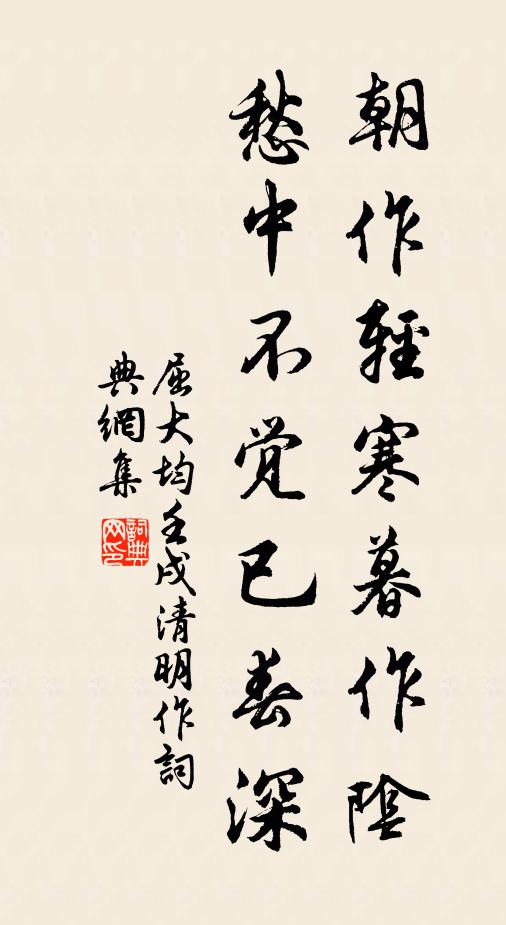 朝作輕寒暮作陰
愁中不觉已春深
屈大均壬戌清明作詞
典網集
詞典
网印